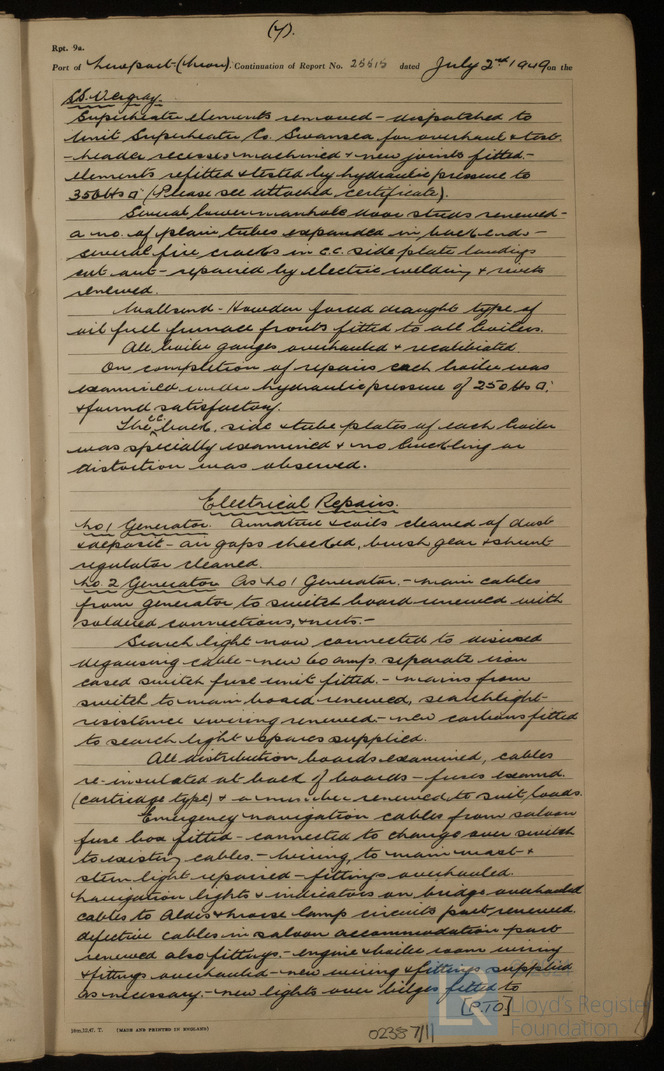 (7).
Rpt. 9a.
Port of Newport (Mon). Continuation of Report No. 25515 dated July 2nd 1949 on the
S.S.
Superheater elements removed - dispatched to
Unit Superheater Co. Swansea for overhaul & test.
- header recesses machined & new joints fitted. -
elements refitted & tested by hydraulic pressure to
350 lbs □" (Please see attached certificate).
Several lower manhole door studs renewed -
a no. of plain tubes expanded in back ends -
several fire cracks in C.C. side plate landings
cut out - repaired by electric welding & rivets
renewed.
Wallsend - Howden forced draught type of
oil fuel furnace fronts fitted to all boilers.
All boiler gauges overhauled & recalibrated
On completion of repairs each boiler was
examined under hydraulic pressure of 250 lbs □"
& found satisfactory.
The C.C. back, side & tube plates of each boiler
was specially examined & no buckling or
distortion was observed.
Electrical Repairs.
No 1 Generator. Armature & coils cleaned of dust
& deposit - air gaps checked, brush gear & shunt
regulator cleaned.
No. 2 Generator As No 1 Generator, - main cables
from generator to switch board renewed with
soldered connections, & nuts. -
Search light now connected to disused
degausing cable - new 60 amps separate iron
cased switch fuse unit fitted. - mains from
switch to main board renewed, searchlight
resistance & wiring renewed. - new carbons fitted
to search light & spares supplied.
All distribution boards examined, cables
re-insulated at back of boards - fuses examd.
(cartridge type) & a number renewed to suit loads.
Emergency navigation cables from saloon
fuse box fitted - connected to change over switch
to existing cables. - wiring, to main mast &
stern light repaired - fittings overhauled.
Navigation lights & indicators on bridge overhauled
cables to Aldis & morse lamp circuits part renewed.
defective cables in saloon accommodation part
renewed also fittings. - engine & boiler room wiring
& fittings overhauled - new wiring & fittings supplied
as necessary. - new lights over bilges fitted to
[P.T.O.]
10m,12,47. T. (MADE AND PRINTED IN ENGLAND)
0238 7/11
Lloyd's Register
Foundation